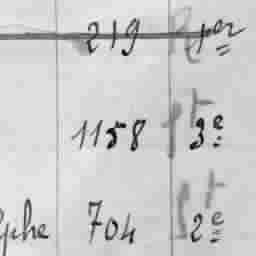 219 1er
1158 3e
phe 704 2e